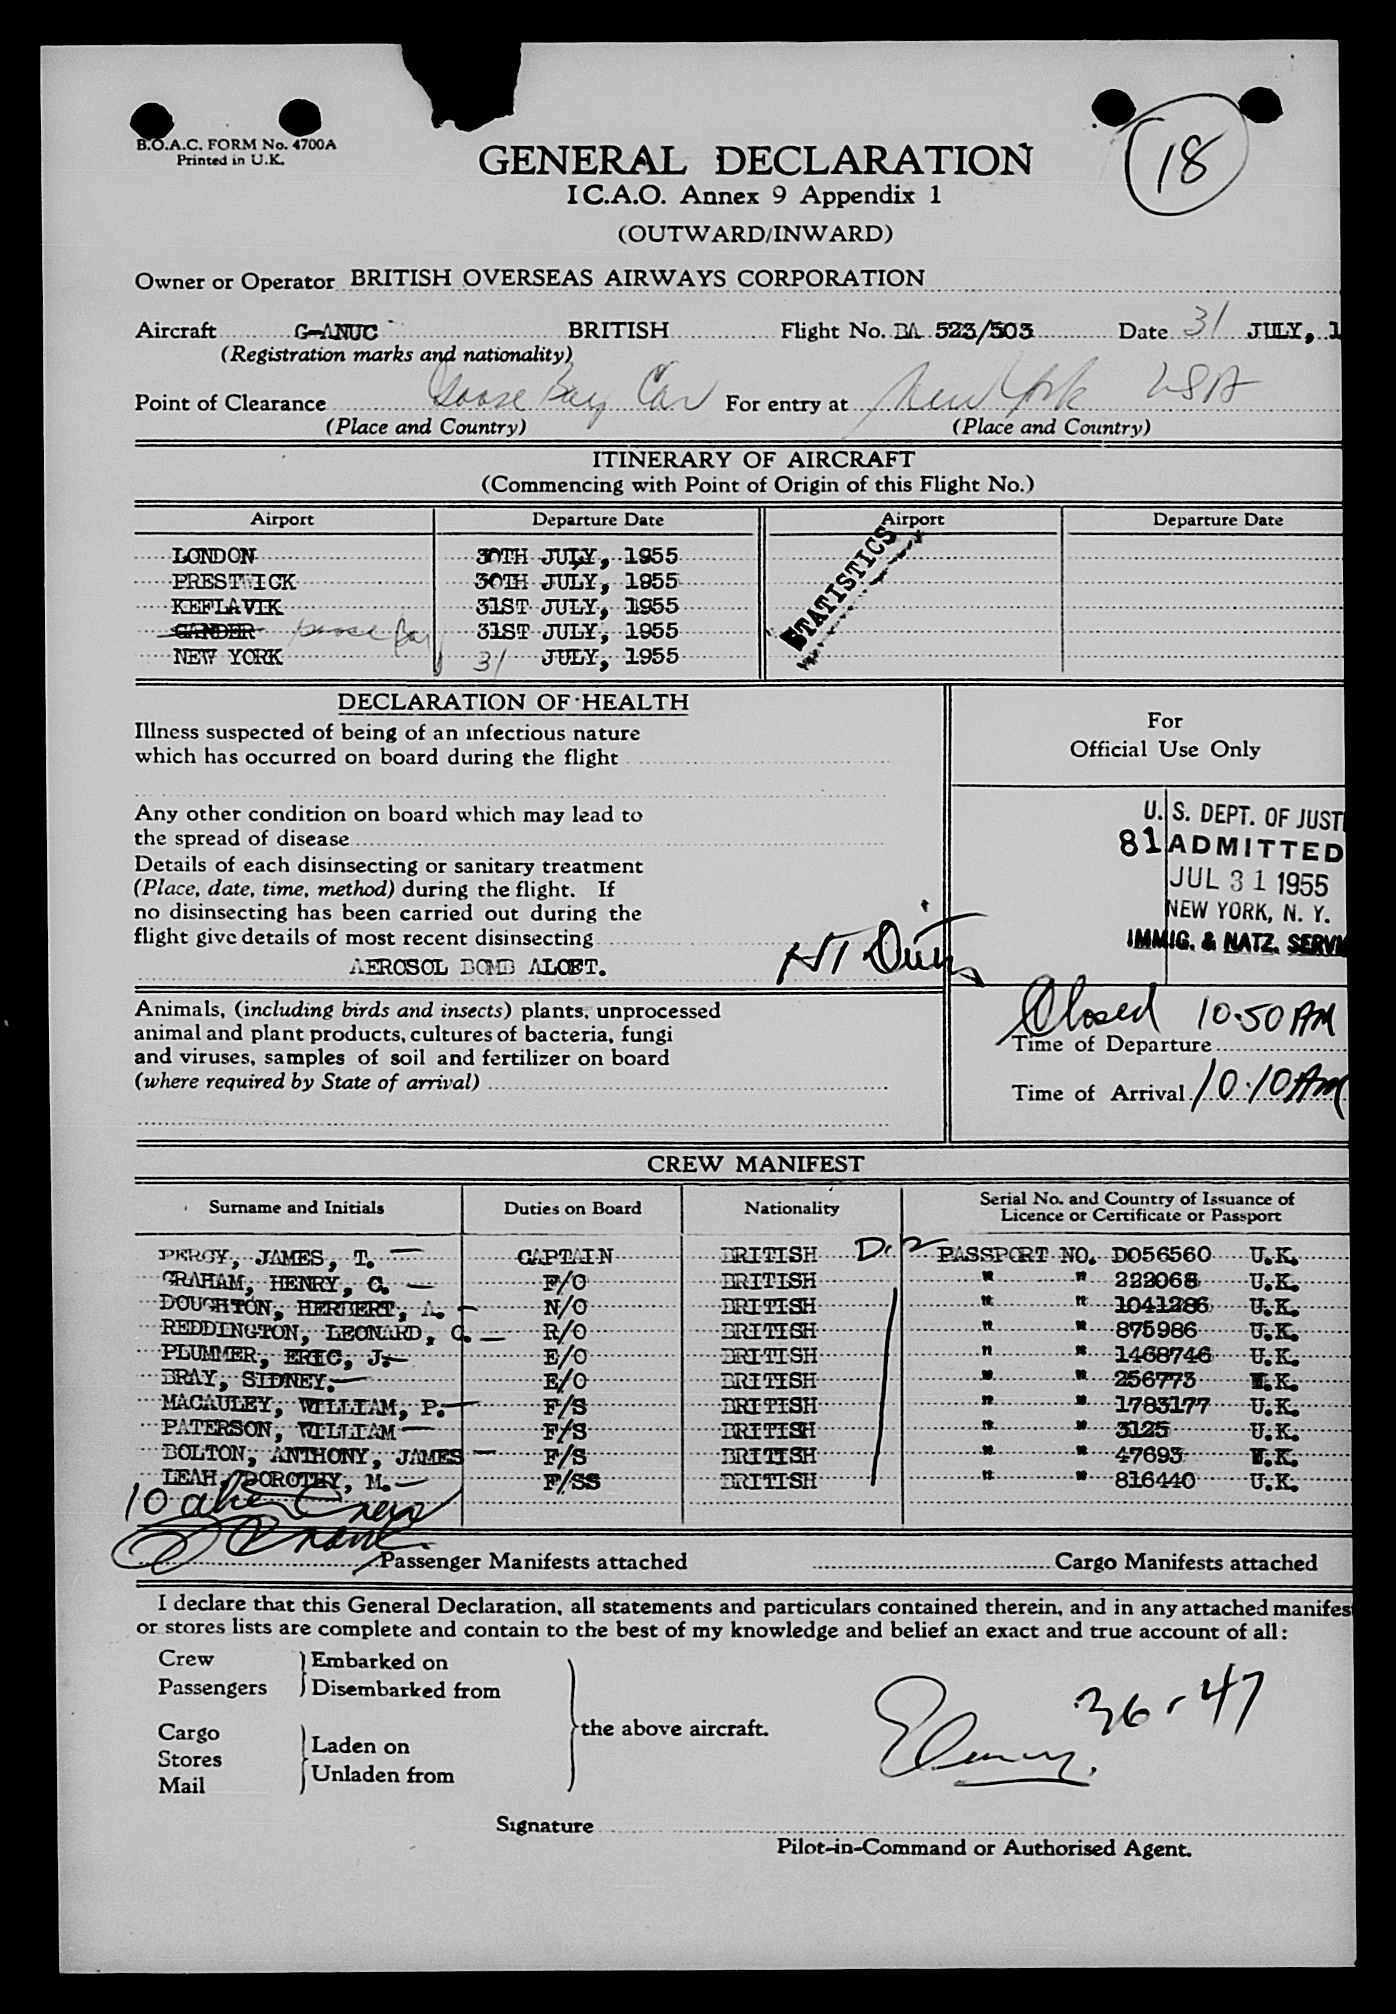 B.O.A.C. FORM No. 4700A
Printed in U.K.
18
GENERAL DECLARATION
I C.A.O. Annex 9 Appendix 1
(OUTWARD/INWARD)
Owner or Operator BRITISH OVERSEAS AIRWAYS CORPORATION
Aircraft G-ANUC BRITISH Flight No. BA 523/503 Date 31 JULY, 1
(Registration marks and nationality)
Point of Clearance Goose Bay Can For entry at New York USA
(Place and Country) (Place and Country)
ITINERARY OF AIRCRAFT
(Commencing with Point of Origin of this Flight No.)
Airport Departure Date Airport Departure Date
LONDON 30TH JULY, 1955
PRESTWICK 30TH JULY, 1955
KEFLAVIK 31ST JULY, 1955
GANDER Goose Bay 31ST JULY, 1955
NEW YORK 31 JULY, 1955
STATISTICS
DECLARATION OF HEALTH
Illness suspected of being of an infectious nature
which has occurred on board during the flight
Any other condition on board which may lead to
the spread of disease
Details of each disinsecting or sanitary treatment
(Place, date, time, method) during the flight. If
no disinsecting has been carried out during the
flight give details of most recent disinsecting
AEROSOL BOMB ALOFT.
For
Official Use Only
U. S. DEPT. OF JUSTI
81 ADMITTED
JUL 31 1955
NEW YORK, N. Y.
IMMIG. & NATZ. SERVI
Animals, (including birds and insects) plants, unprocessed
animal and plant products, cultures of bacteria, fungi
and viruses, samples of soil and fertilizer on board
(where required by State of arrival)
Closed 10.50 AM
Time of Departure
Time of Arrival 10.10 AM
CREW MANIFEST
Surname and Initials Duties on Board Nationality Serial No. and Country of Issuance of
Licence or Certificate or Passport
PERCY, JAMES, T. CAPTAIN BRITISH D.12 PASSPORT NO. D056560 U.K.
GRAHAM, HENRY, C. F/O BRITISH " " 222068 U.K.
DOUGHTON, HERBERT, A. N/O BRITISH " " 1041286 U.K.
REDDINGTON, LEONARD, C. R/O BRITISH " " 875986 U.K.
PLUMMER, ERIC, J. E/O BRITISH " " 1468746 U.K.
BRAY, SIDNEY. E/O BRITISH " " 256773 U.K.
MACAULEY, WILLIAM, P. F/S BRITISH " " 1783177 U.K.
PATERSON, WILLIAM F/S BRITISH " " 3125 U.K.
BOLTON, ANTHONY, JAMES F/S BRITISH " " 47693 U.K.
LEAH, DOROTHY, M. F/SS BRITISH " " 816440 U.K.
10 alien Crew
Passenger Manifests attached Cargo Manifests attached
I declare that this General Declaration, all statements and particulars contained therein, and in any attached manifes
or stores lists are complete and contain to the best of my knowledge and belief an exact and true account of all:
Crew Embarked on
Passengers Disembarked from
the above aircraft.
Cargo Laden on
Stores Unladen from
Mail
36-47
Signature
Pilot-in-Command or Authorised Agent.